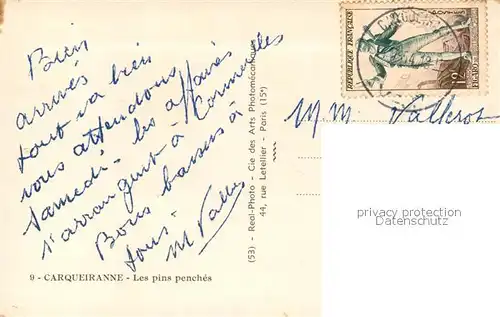 Bien
arrivés
tout va bien
vous attendons
samedi - les affaires
s'arrangent à Cormeilles
Bons baisers à
tous -
M Valle
9 - CARQUEIRANNE - Les pins penchés
(53) - Real-Photo - Cie des Arts Photomécaniques
44, rue Letellier - Paris (15e)
REPUBLIQUE FRANÇAISE
POSTES
M. M. Vallerot
privacy protection
Datenschutz